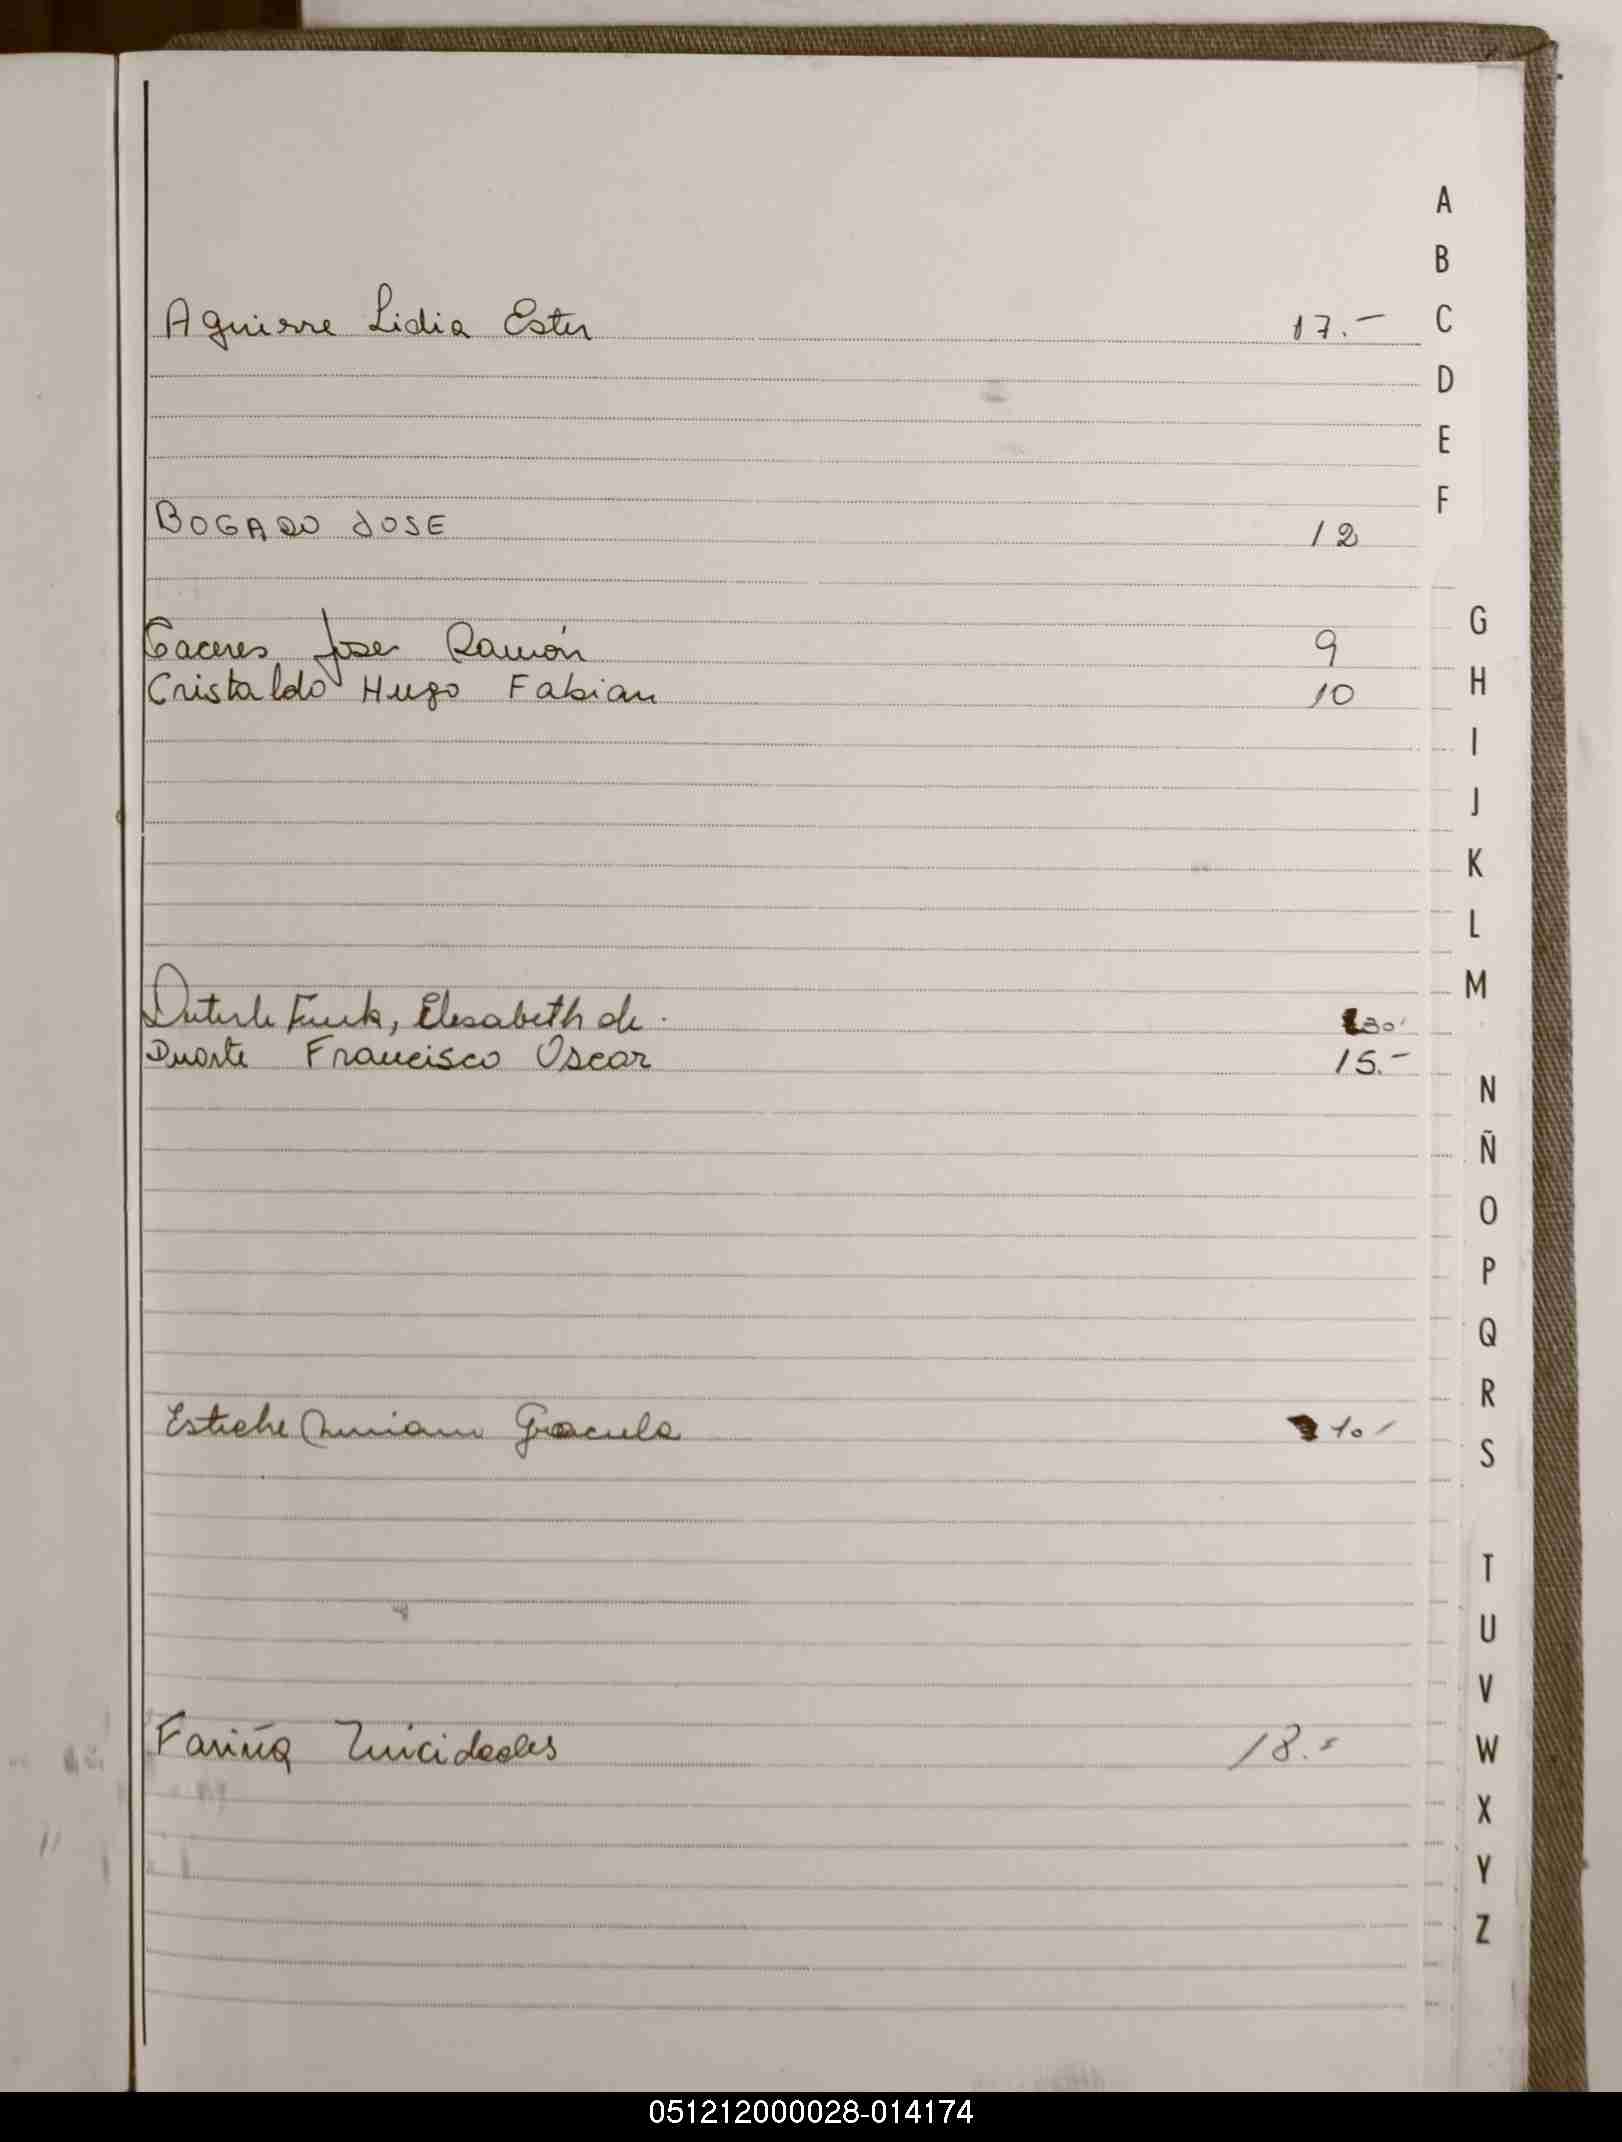 A
B
Aguirre Lidia Ester 17.- C
D
E
F
BOGADO JOSE 12
G
Caceres Jose Ramón 9
Cristaldo Hugo Fabian 10 H
I
J
K
L
M
Funk, Elisabeth de. 30
Duarte Francisco Oscar 15.-
N
Ñ
O
P
Q
R
Esteche Miriam Graciela 10
S
T
U
V
Fariña 18.=
W
X
Y
Z
051212000028-014174